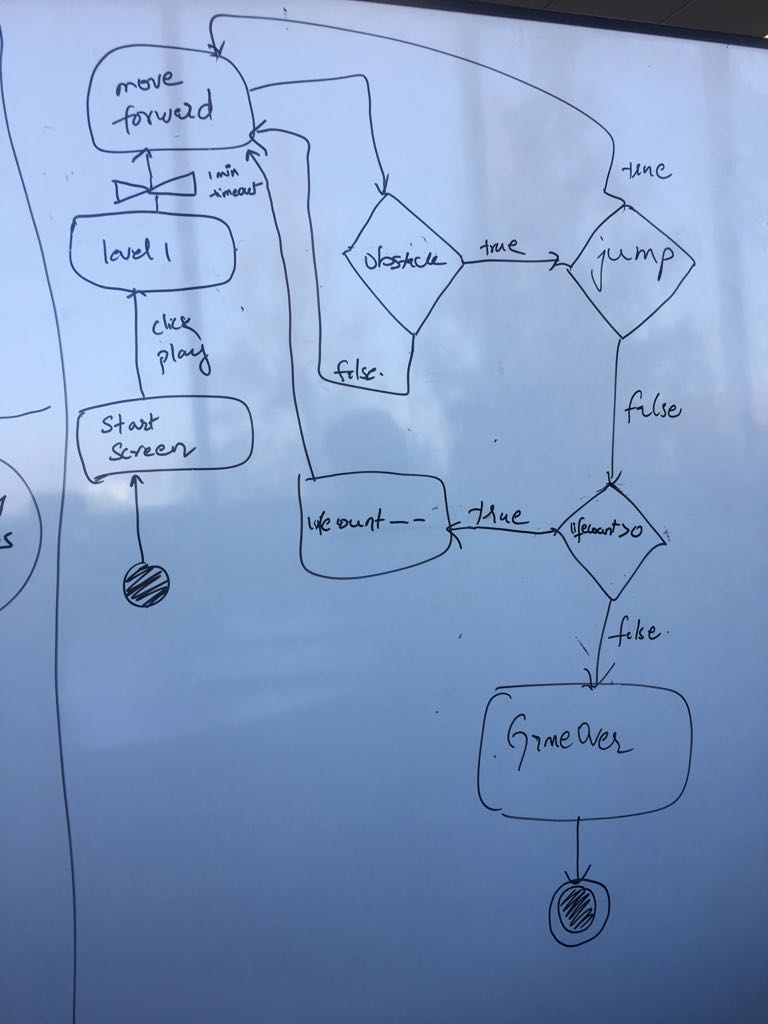 move
forward
1 min
timeout
level 1
click
play
start
screen
obstacle
true
false.
jump
true
false
lifecount>0
true
lifecount--
false.
Game Over
s